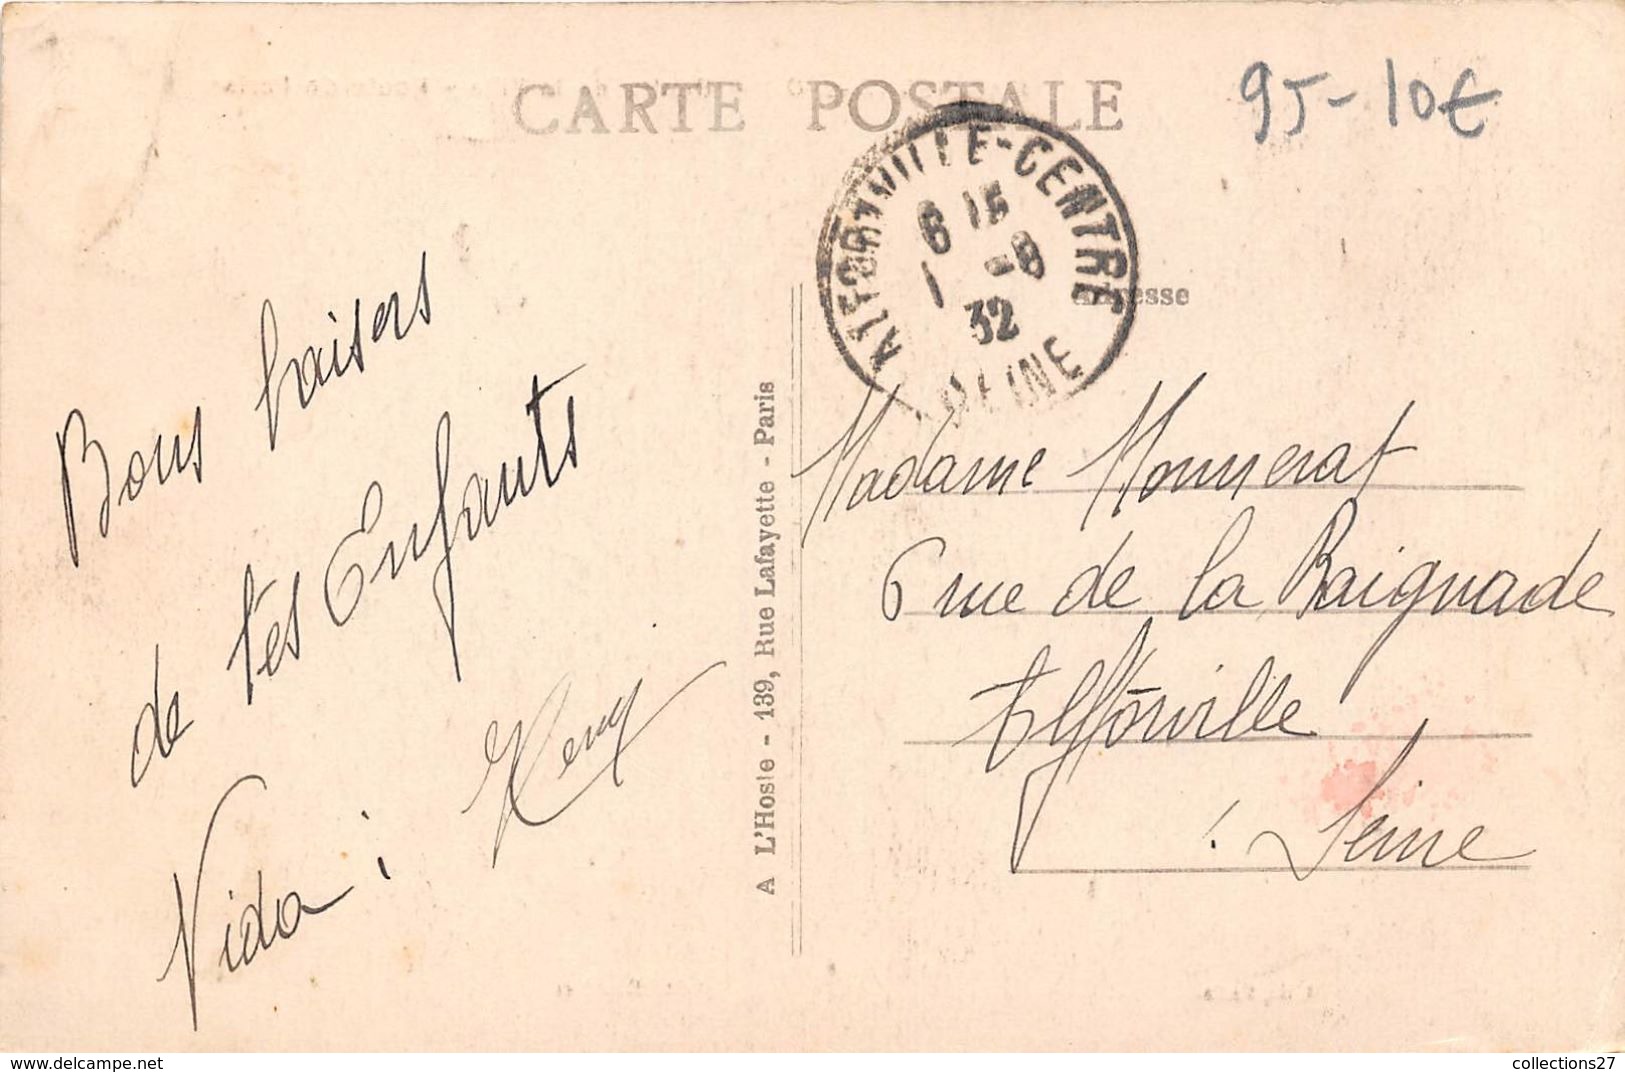 CARTE POSTALE
95-10€
ALFORTVILLE-CENTRE
6 15
1 -8
32
SEINE
Adresse
Bons baisers
de tes Enfants
Vida
A L'Hoste - 139, Rue Lafayette - Paris
Madame Monnerat
6 rue de la Baignade
Alfforville
Seine
collections27